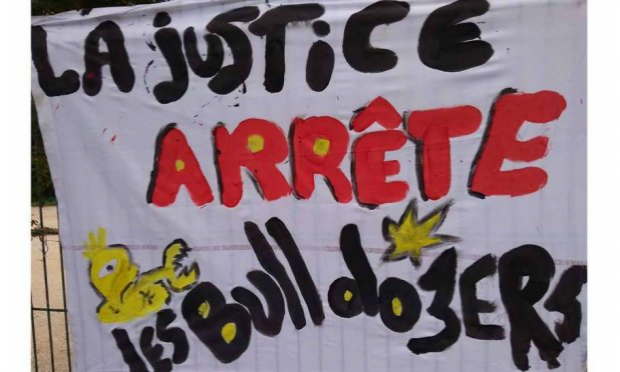 LA jUSTiCE
ARRÊTE
LES BUlldoZERS